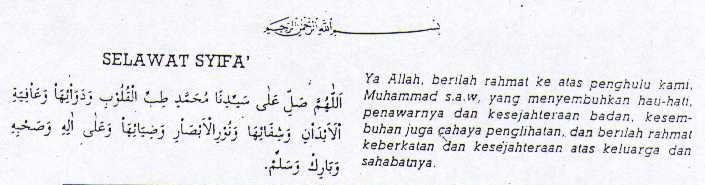 بسم الله الرحمن الرحيم
SELAWAT SYIFA'
اَللّٰهُمَّ صَلِّ عَلٰى سَيِّدِنَا مُحَمَّدٍ طِبِّ الْقُلُوْبِ وَدَوَائِهَا وَعَافِيَةِ
اْلاَبْدَانِ وَشِفَائِهَا وَنُوْرِ اْلاَبْصَارِ وَضِيَائِهَا وَعَلٰى اٰلِهِ وَصَحْبِهِ
وَبَارِكْ وَسَلِّمْ.
Ya Allah, berilah rahmat ke atas penghulu kami,
Muhammad s.a.w, yang menyembuhkan hau-hati,
penawarnya dan kesejahteraan badan, kesem-
buhan juga cahaya penglihatan, dan berilah rahmat
keberkatan dan kesejahteraan atas keluarga dan
sahabatnya.